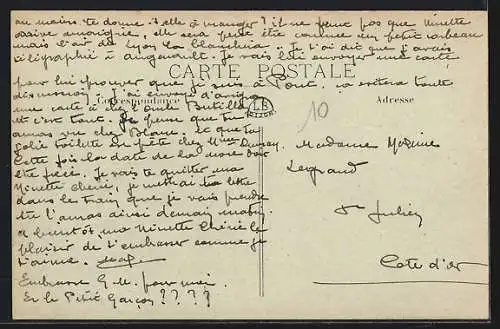 au moins. te donne-t-elle à manger ? il ne faut pas que Ninette
arrive amaigrie, elle sera peut être comme un petit corbeau
mais l'air de Lyon la blanchira. Je t'ai dit que j'avais
télégraphié à Angenault. Je vais lui envoyer une carte
pour lui prouver que je suis à Pont. ça évitera toute
CARTE POSTALE
discussion. J'ai envoyé d'
Correspondance
Adresse
une carte à chez l'oncle
LB
DIJON
10
et c'est tout. Je pense que tu
amus vu chez Blanc. et que ta
jolie toilette est prête chez Mme
Cette fois la date de la noce doit
être fixée. Je vais te quitter ma
Ninette chérie, je mettrai ta lettre
dans le train que je vais prendre
tu l'auras ainsi demain matin
à bientôt, ma Ninette chérie le
plaisir de t'embrasser comme je
t'aime.
Embrasse G. M. pour moi.
Et le Petit Garçon ? ? ? ?
Madame Maxime
Legrand
St Julien
Cote d'or